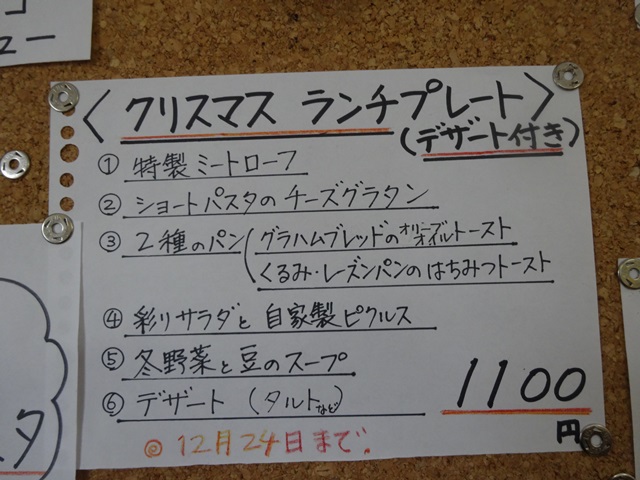 ュー
〈クリスマス ランチプレート〉
(デザート付き)
① 特製ミートローフ
② ショートパスタのチーズグラタン
③ 2種のパン(グラハムブレッドのオリーブオイルトースト
くるみ・レーズンパンのはちみつトースト
④ 彩りサラダと自家製ピクルス
⑤ 冬野菜と豆のスープ
⑥ デザート (タルトなど)
1100円
◎ 12月24日まで.
タ